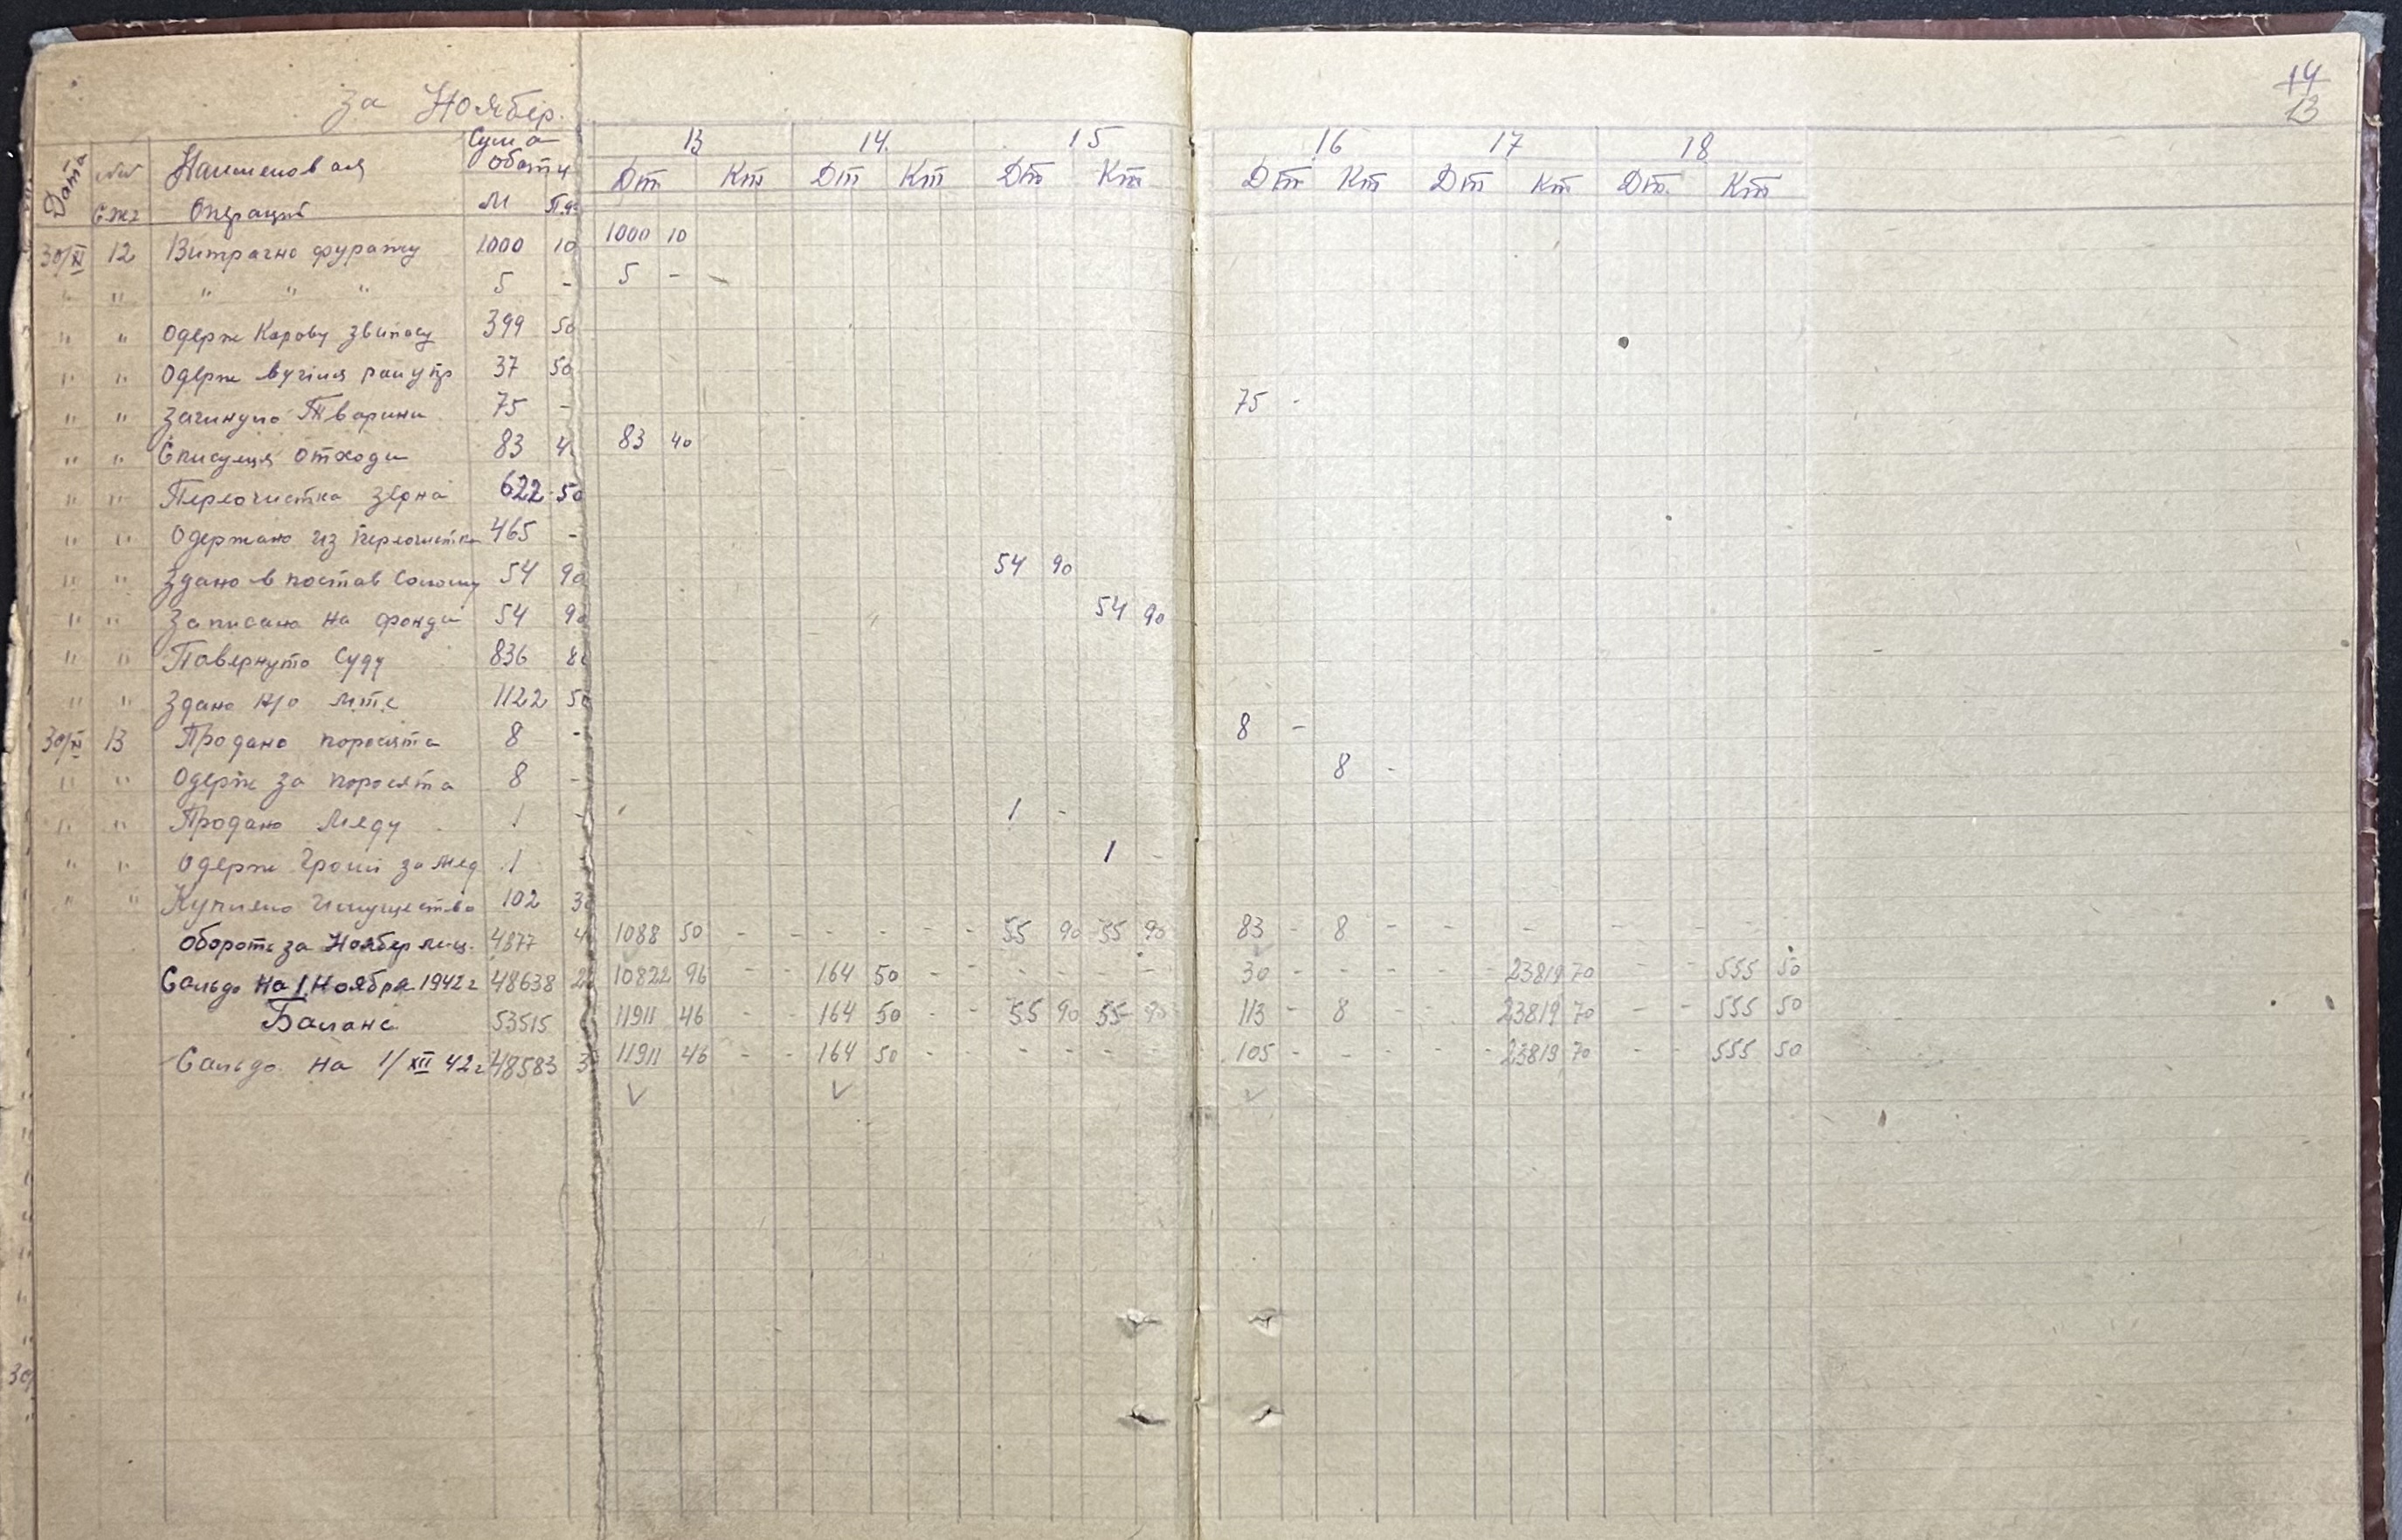 14
13
за Ноябер.
Дата № Наименования Сума обот 13 14. 15 16 17 18
Операций М Дт Кт Дт Кт Дт Кт Дт Кт Дт Кт Дт. Кт
30/XI 12 Витрачно фуражу 1000 10 1000 10
" " " " " 5 - 5 -
" " Одерж Корову 399 50
" " Одерж 37 50
" " Загинуло Тварини 75 - 75 -
" " Списуеця отходи 83 4 83 40
" " Переочистка зерна 622 50
" " Одержано из переочистки 465 -
" " Здано в постав Солому 54 90 54 90
" " Записано на фонди 54 90 54 90
" " Повернуто Суду 836 8
" " Здано н/о мтс 1122 50
30/XI 13 Продано поросята 8 - 8 -
" " Одерж за поросята 8 - 8 -
" " Продано Меду 1 - 1 -
" " Одерж Гроші за мед 1 1 -
" " Куплено Имущество 102 3
Оборот за Ноябер м-ц. 4877 4 1088 50 - - - - - - 55 90 55 90 83 - 8 - - - - - - -
Сальдо на 1 Ноября 1942 г 48638 2 10822 96 - - 164 50 - - - - - - 30 - - - - - 23819 70 - - 555 50
Баланс 53515 11911 46 - - 164 50 - - 55 90 55 90 113 - 8 - - - 23819 70 - - 555 50
Сальдо на 1/XII 42 г 48583 3 11911 46 - - 164 50 - - - - - - 105 - - - - - 23819 70 - - 555 50